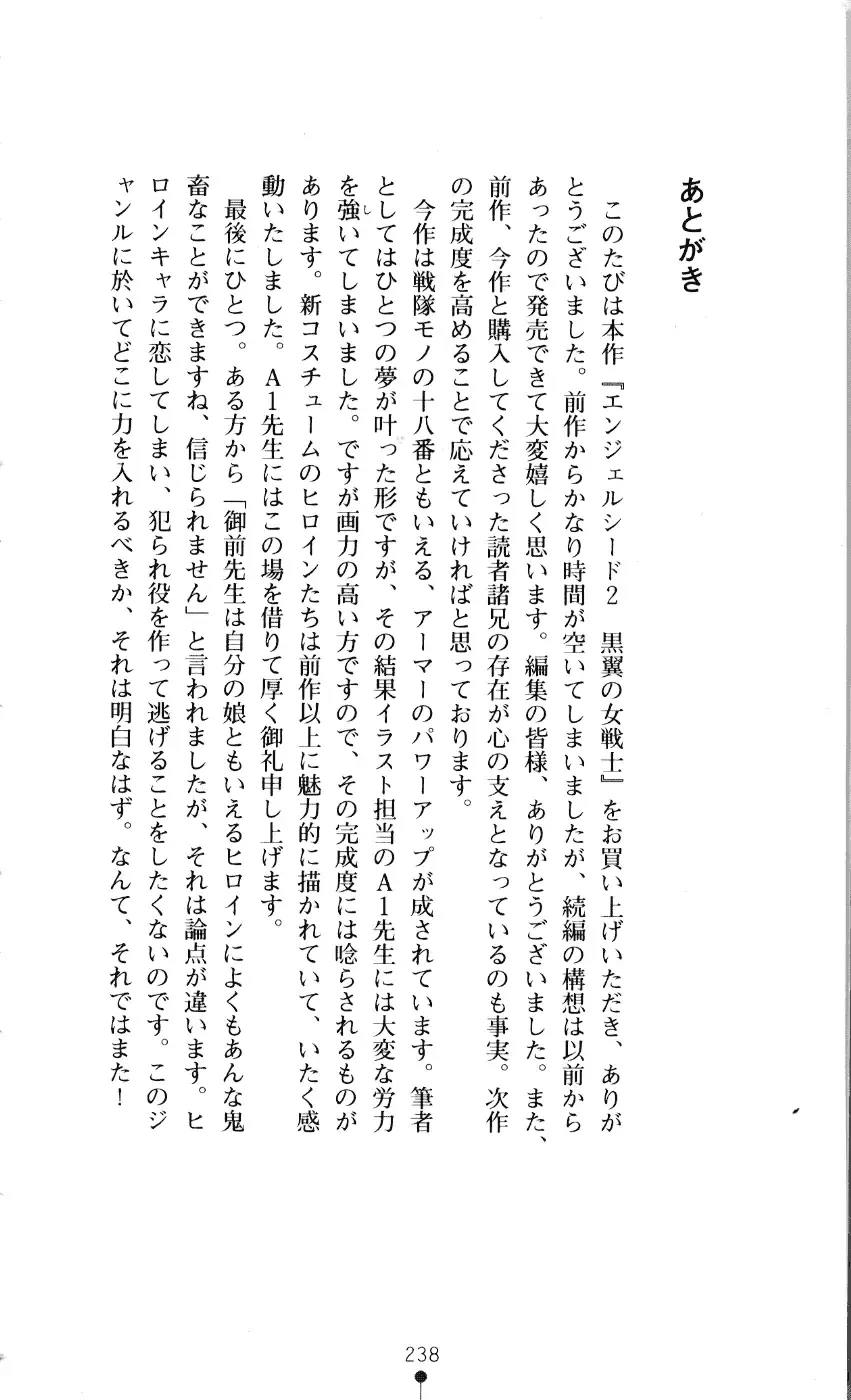 あとがき
このたびは本作『エンジェルシード2　黒翼の女戦士』をお買い上げいただき、ありが
とうございました。前作からかなり時間が空いてしまいましたが、続編の構想は以前から
あったので発売できて大変嬉しく思います。編集の皆様、ありがとうございました。また、
前作、今作と購入してくださった読者諸兄の存在が心の支えとなっているのも事実。次作
の完成度を高めることで応えていければと思っております。
今作は戦隊モノの十八番ともいえる、アーマーのパワーアップが成されています。筆者
としてはひとつの夢が叶った形ですが、その結果イラスト担当のA1先生には大変な労力
を強いてしまいました。ですが画力の高い方ですので、その完成度には唸らされるものが
あります。新コスチュームのヒロインたちは前作以上に魅力的に描かれていて、いたく感
動いたしました。A1先生にはこの場を借りて厚く御礼申し上げます。
最後にひとつ。ある方から「御前先生は自分の娘ともいえるヒロインによくもあんな鬼
畜なことができますね、信じられません」と言われましたが、それは論点が違います。ヒ
ロインキャラに恋してしまい、犯られ役を作って逃げることをしたくないのです。このジ
ャンルに於いてどこに力を入れるべきか、それは明白なはず。なんて、それではまた！
238